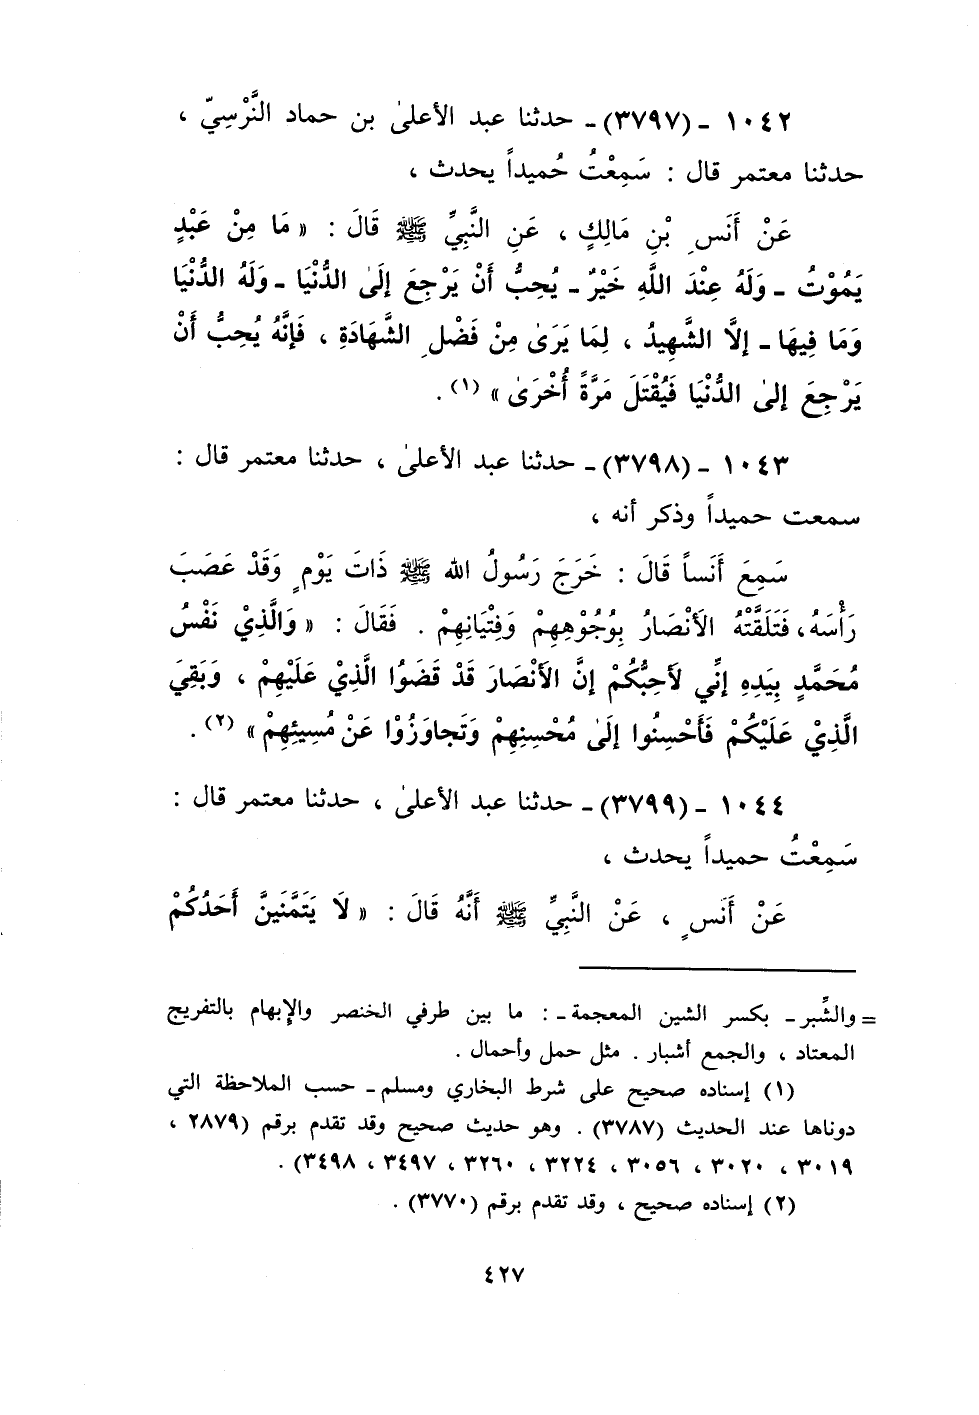 ١٠٤٢ - (٣٧٩٧) - حدثنا عبد الأعلىٰ بن حماد النَّرْسِيّ ،
حدثنا معتمر قال : سَمِعْتُ حُميداً يحدث ،
عَنْ أَنَسِ بْنِ مَالِكٍ ، عَنِ النَّبِيِّ ﷺ قَالَ : « مَا مِنْ عَبْدٍ
يَمُوْتُ - وَلَهُ عِنْدَ اللَّهِ خَيْرٌ - يُحِبُّ أَنْ يَرْجِعَ إلَى الدُّنْيَا - وَلَهُ الدُّنْيَا
وَمَا فِيهَا - إلَّا الشَّهِيدُ ، لِمَا يَرَىٰ مِنْ فَضْلِ الشَّهَادَةِ ، فَإنَّهُ يُحِبُّ أَنْ
يَرْجِعَ إلىٰ الدُّنْيَا فَيُقْتَلَ مَرَّةً أُخْرَىٰ »(١) .
١٠٤٣ - (٣٧٩٨) - حدثنا عبد الأعلىٰ ، حدثنا معتمر قال :
سمعت حميداً وذكر أنه ،
سَمِعَ أَنَساً قَالَ : خَرَجَ رَسُولُ الله ﷺ ذَاتَ يَوْمٍ وَقَدْ عَصَبَ
رَأْسَهُ، فَتَلَقَّتْهُ الأَنْصَارُ بِوُجُوْهِهِمْ وَفِتْيَانِهِمْ . فَقَالَ : « وَالَّذِيْ نَفْسُ
مُحَمَّدٍ بِيَدِهِ إنِّي لَأحِبُّكُمْ إنَّ الأَنْصَارَ قَدْ قَضَوُا الَّذِيْ عَلَيْهِمْ ، وَبَقِيَ
الَّذِيْ عَلَيْكُمْ فَأَحْسِنُوا إلَىٰ مُحْسِنِهِمْ وَتَجاوَزُوْا عَنْ مُسِيئِهِمْ »(٢) .
١٠٤٤ - (٣٧٩٩) - حدثنا عبد الأعلىٰ ، حدثنا معتمر قال :
سَمِعْتُ حميداً يحدث ،
عَنْ أَنَسٍ ، عَنْ النَّبِيِّ ﷺ أَنَّهُ قَالَ : « لَا يَتَمَّنَينَّ أَحَدُكُمْ
= والشِّبر - بكسر الشين المعجمة - : ما بين طرفي الخنصر والإبهام بالتفريج
المعتاد ، والجمع أشبار . مثل حمل وأحمال .
(١) إسناده صحيح على شرط البخاري ومسلم - حسب الملاحظة التي
دوناها عند الحديث (٣٧٨٧) . وهو حديث صحيح وقد تقدم برقم (٢٨٧٩ ،
٣٠١٩ ، ٣٠٢٠ ، ٣٠٥٦ ، ٣٢٢٤ ، ٣٢٦٠ ، ٣٤٩٧ ، ٣٤٩٨) .
(٢) إسناده صحيح ، وقد تقدم برقم (٣٧٧٠) .
٤٢٧